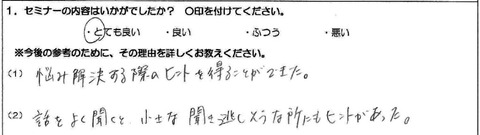 1．セミナーの内容はいかがでしたか？ ○印を付けてください。
・とても良い ・良い ・ふつう ・悪い
※今後の参考のために、その理由を詳しくお教えください。
(1) 悩み解決する際のヒントを得ることができた。
(2) 話をよく聞くと、小さな聞き逃しそうな所にもヒントがあった。